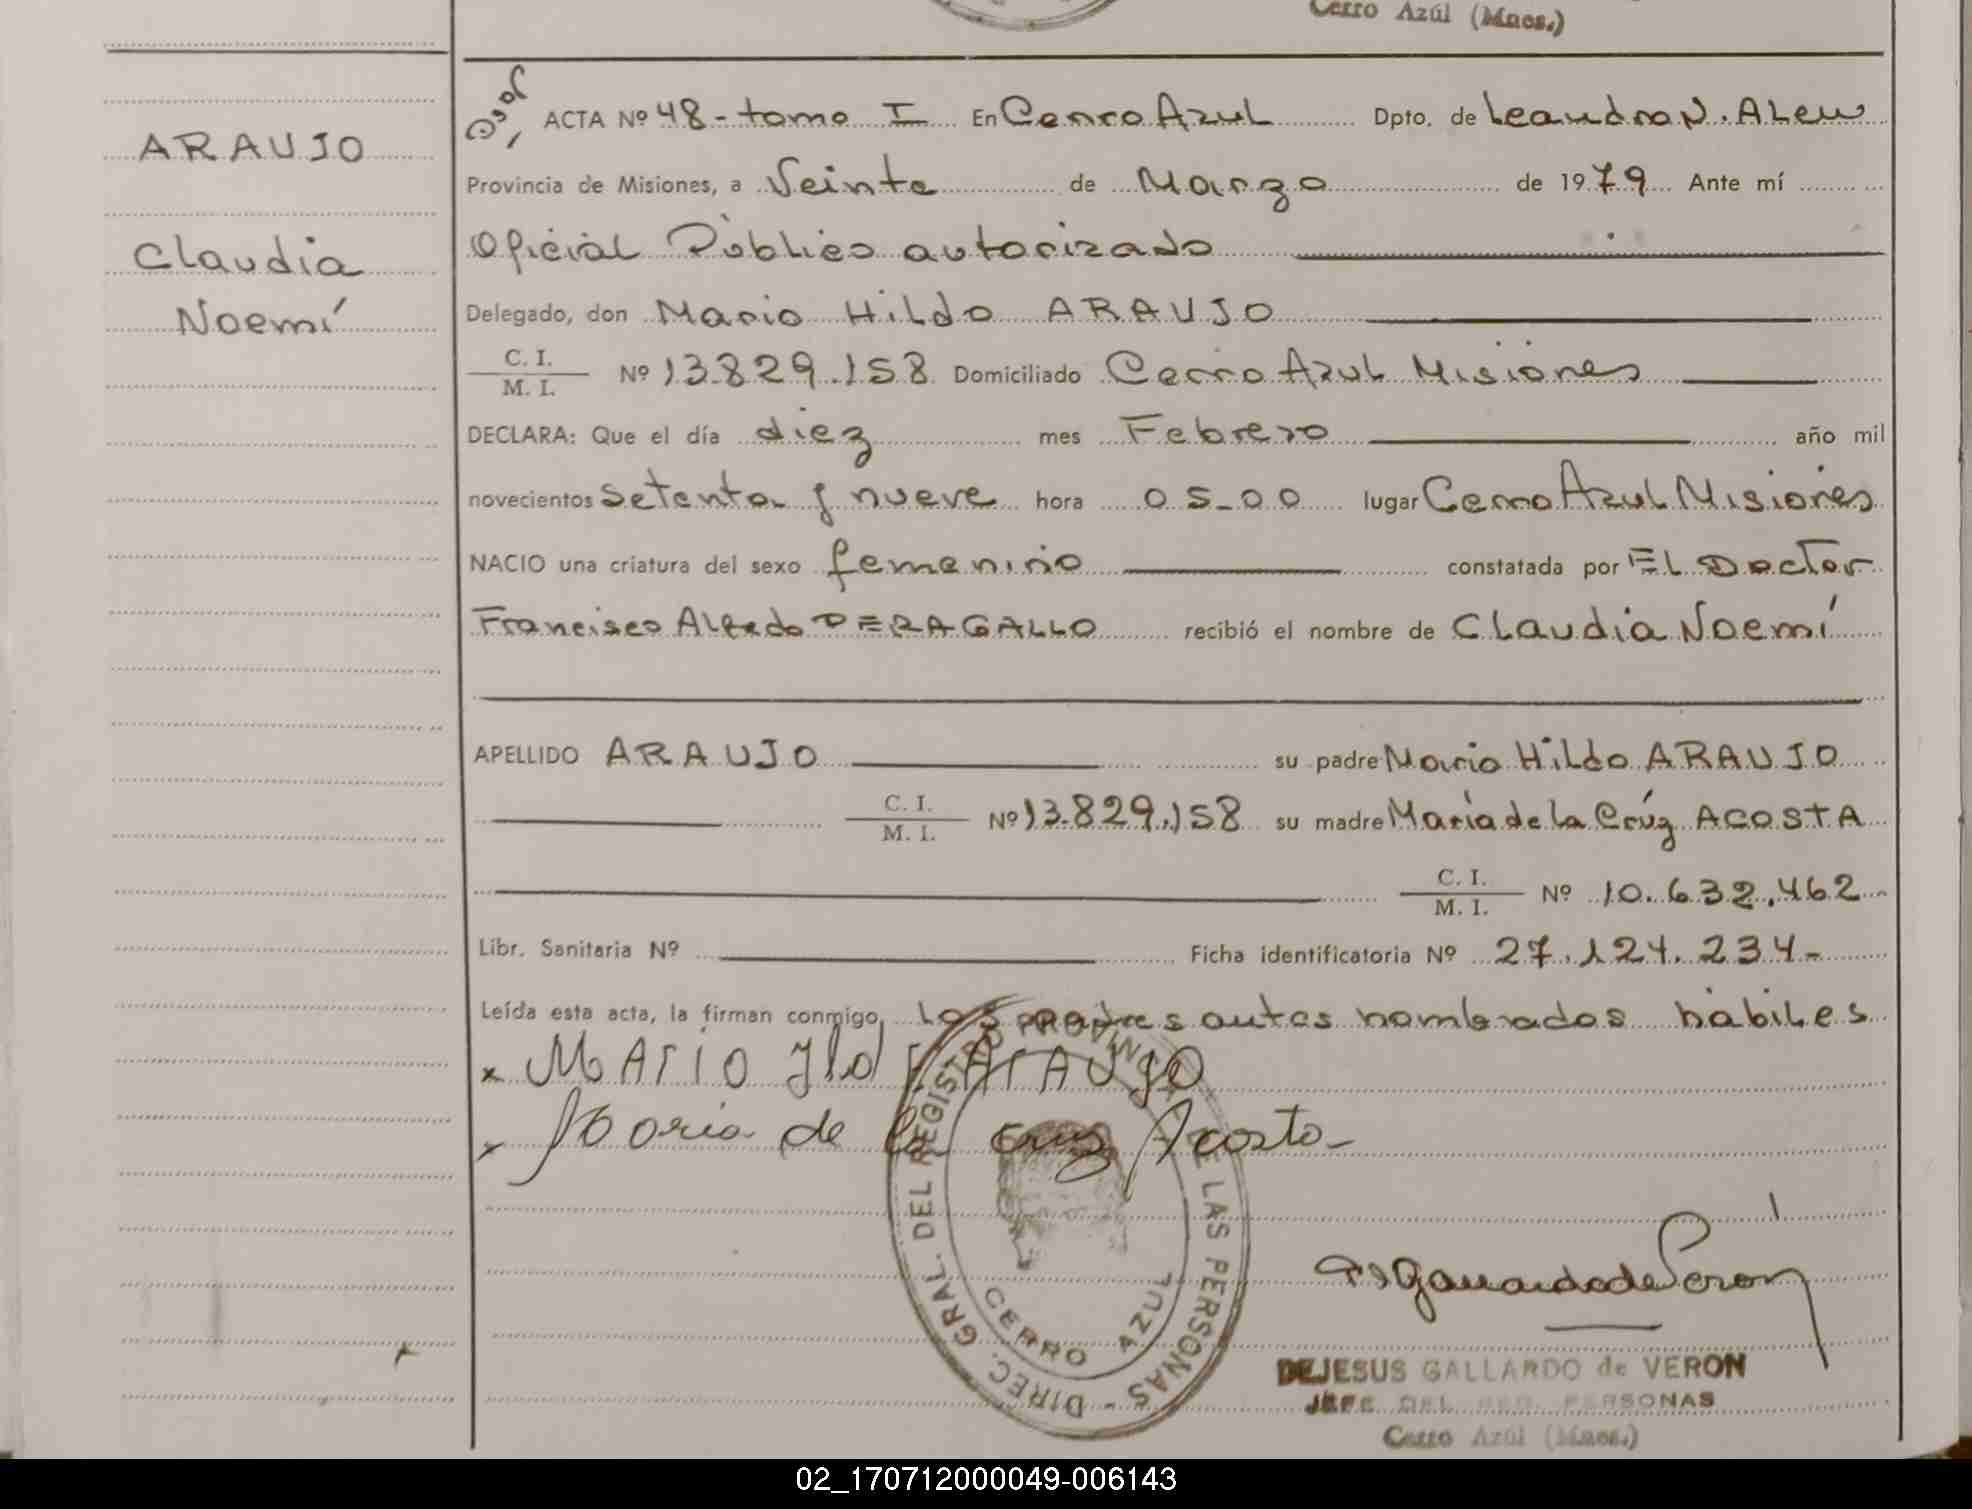 Cerro Azúl (Mnes.)
ARAUJO
Claudia
Noemí
ACTA Nº 48 - tomo I En Cerro Azul Dpto. de Leandro N. ALem
Provincia de Misiones, a Veinte de Marzo de 1979 Ante mí
Oficial Público autorizado
Delegado, don Mario Hildo ARAUJO
C. I.
M. I. Nº 13.829.158 Domiciliado Cerro Azul Misiones
DECLARA: Que el día diez mes Febrero año mil
novecientos setenta y nueve hora 05-00 lugar Cerro Azul Misiones
NACIO una criatura del sexo femenino constatada por EL Doctor
Francisco Alfredo DERAGALLO recibió el nombre de Claudia Noemí
APELLIDO ARAUJO su padre Mario Hildo ARAUJO
C. I.
M. I. Nº 13.829.158 su madre María de la Crúz ACOSTA
C. I.
M. I. Nº 10.632.462
Libr. Sanitaria Nº Ficha identificatoria Nº 27.124.234-
Leída esta acta, la firman conmigo, los padres antes nombrados hábiles
x Mario Ildo Araujo
x Maria de la Cruz Acosta
DIREC. GRAL. DEL REGISTRO PROVINCIAL DE LAS PERSONAS -
CERRO AZUL
Gallardo de Veron
DEJESUS GALLARDO de VERON
JEFE DEL REG. PERSONAS
Cerro Azúl (Mnes.)
02_170712000049-006143